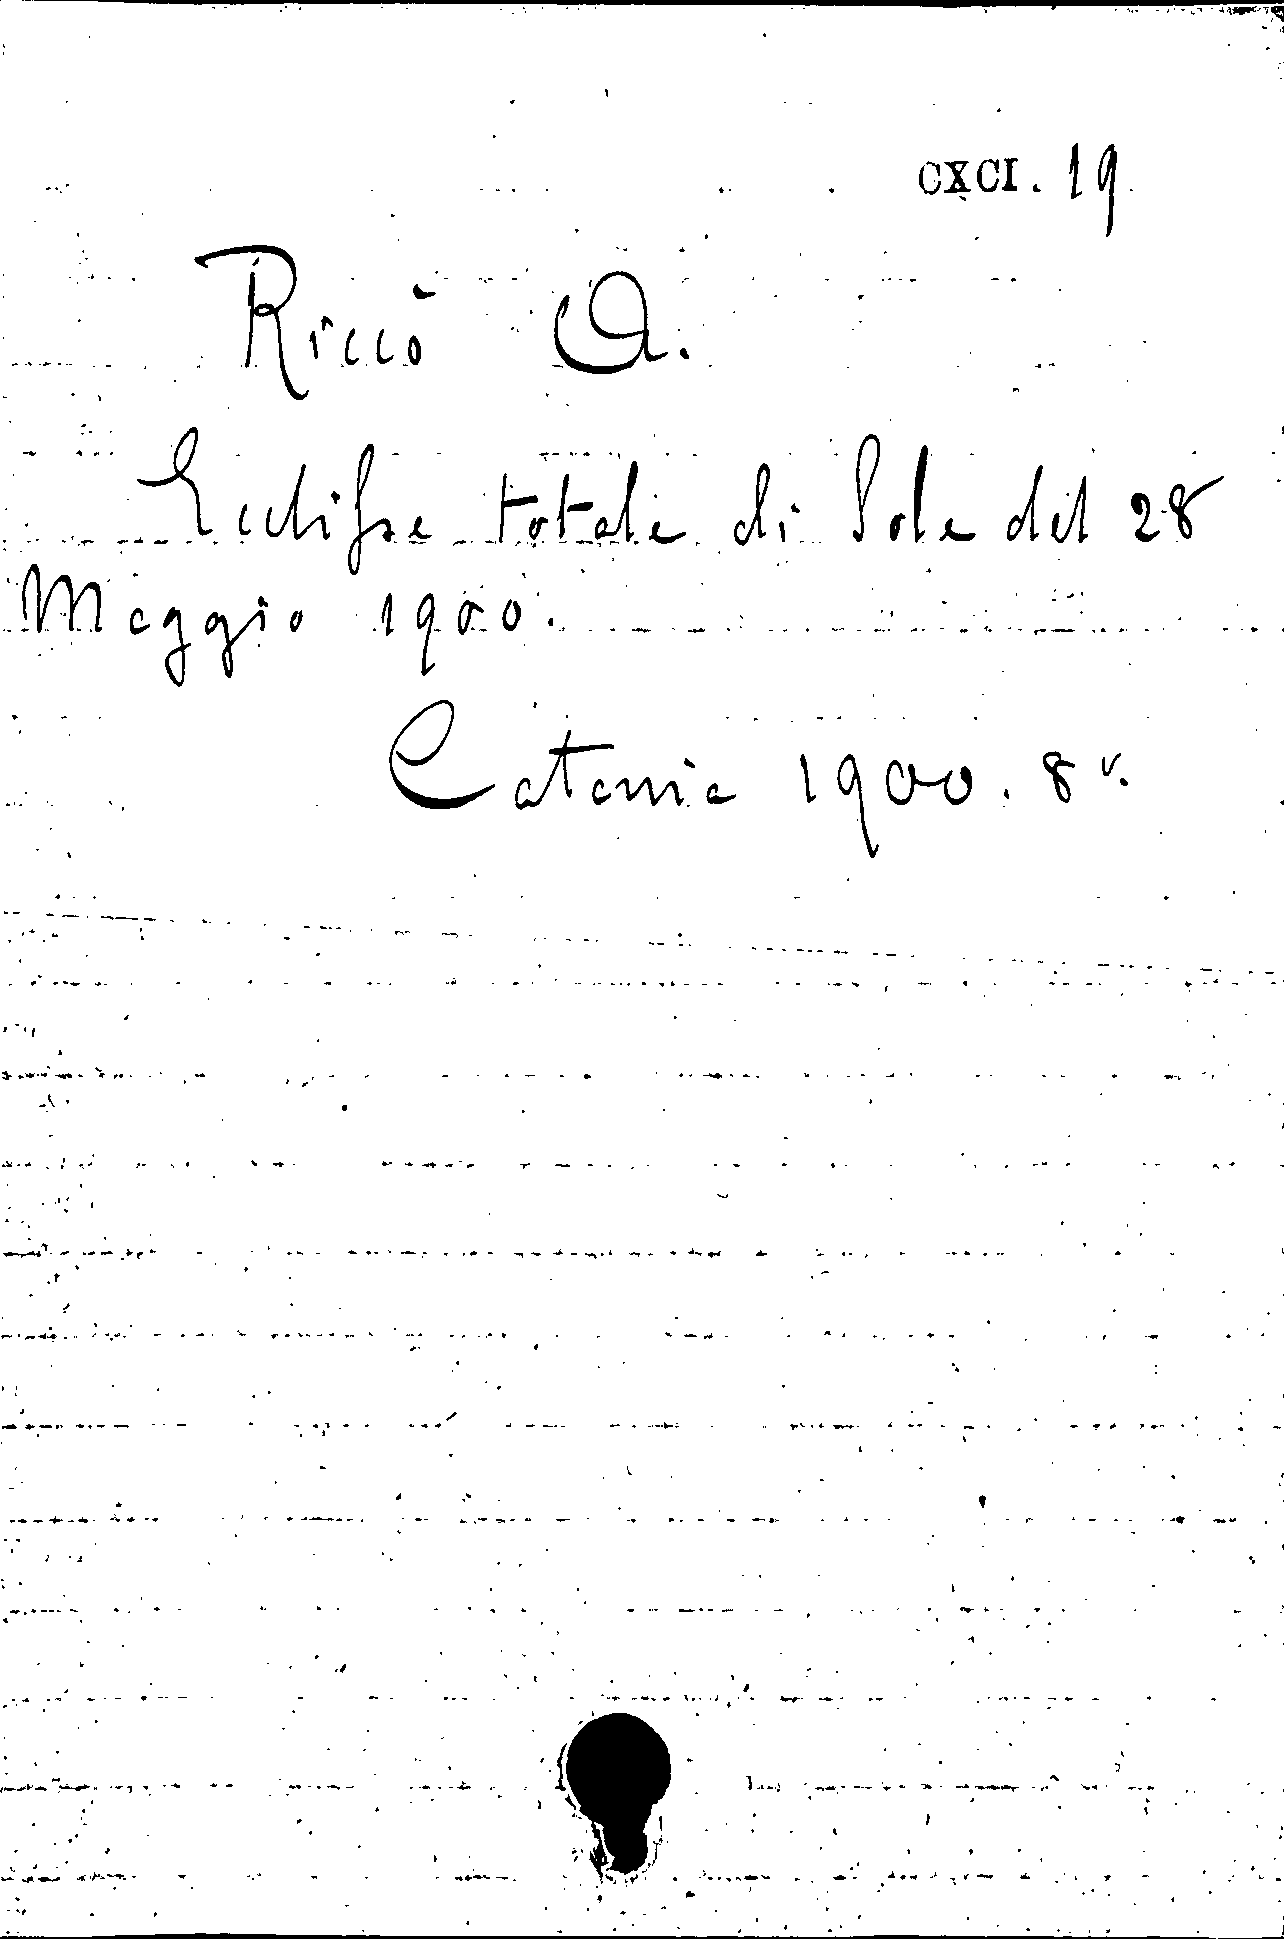 CXCI. 19
Riccò A.
Ecclisse totale di Sole del 28
Maggio 1900.
Catania 1900. 8º.